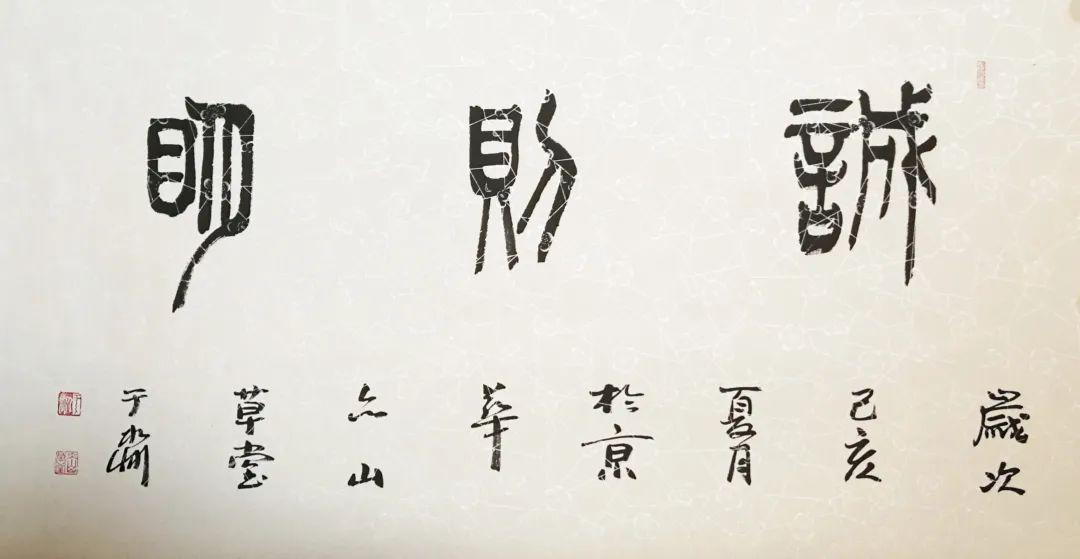 誠則明
歲次
己亥
夏月
於京
華
亦山
草堂
于